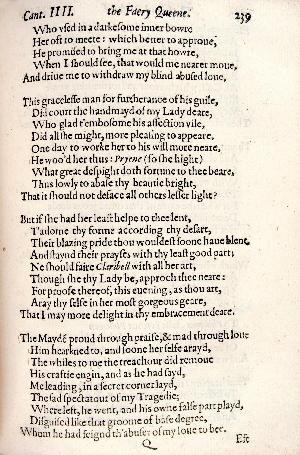 Cant. IIII. the Faery Queene. 239
Who vsed in a darkesome inner bowre
Her oft to meete: which better to approue,
He promised to bring me at that howre,
When I should see, that would me nearer moue,
And driue me to withdraw my blind abused loue.
This gracelesse man for furtherance of his guile,
Did court the handmayd of my Lady deare,
Who glad t'embosome his affection vile,
Did all she might, more pleasing to appeare.
One day to worke her to his will more neare,
He woo'd her thus: Pryene (so she hight)
What great despight doth fortune to thee beare,
Thus lowly to abase thy beautie bright,
That it should not deface all others lesser light?
But if she had her least helpe to thee lent,
T'adorne thy forme according thy desart,
Their blazing pride thou wouldest soone haue blent,
And staynd their prayses with thy least good part;
Ne should faire Claribell with all her art,
Though she thy Lady be, approch thee neare:
For proofe thereof, this euening, as thou art,
Aray thy selfe in her most gorgeous geare,
That I may more delight in thy embracement deare.
The Mayden proud through praise, & mad through loue
Him hearkned to, and soone her selfe arayd,
The whiles to me the treachour did remoue
His craftie engin, and as he had sayd,
Me leading, in a secret corner layd,
The sad spectatour of my Tragedie;
Where left, he went, and his owne false part playd,
Disguised like that groome of base degree,
Whom he had feignd th'abuser of my loue to bee.
Q Eft